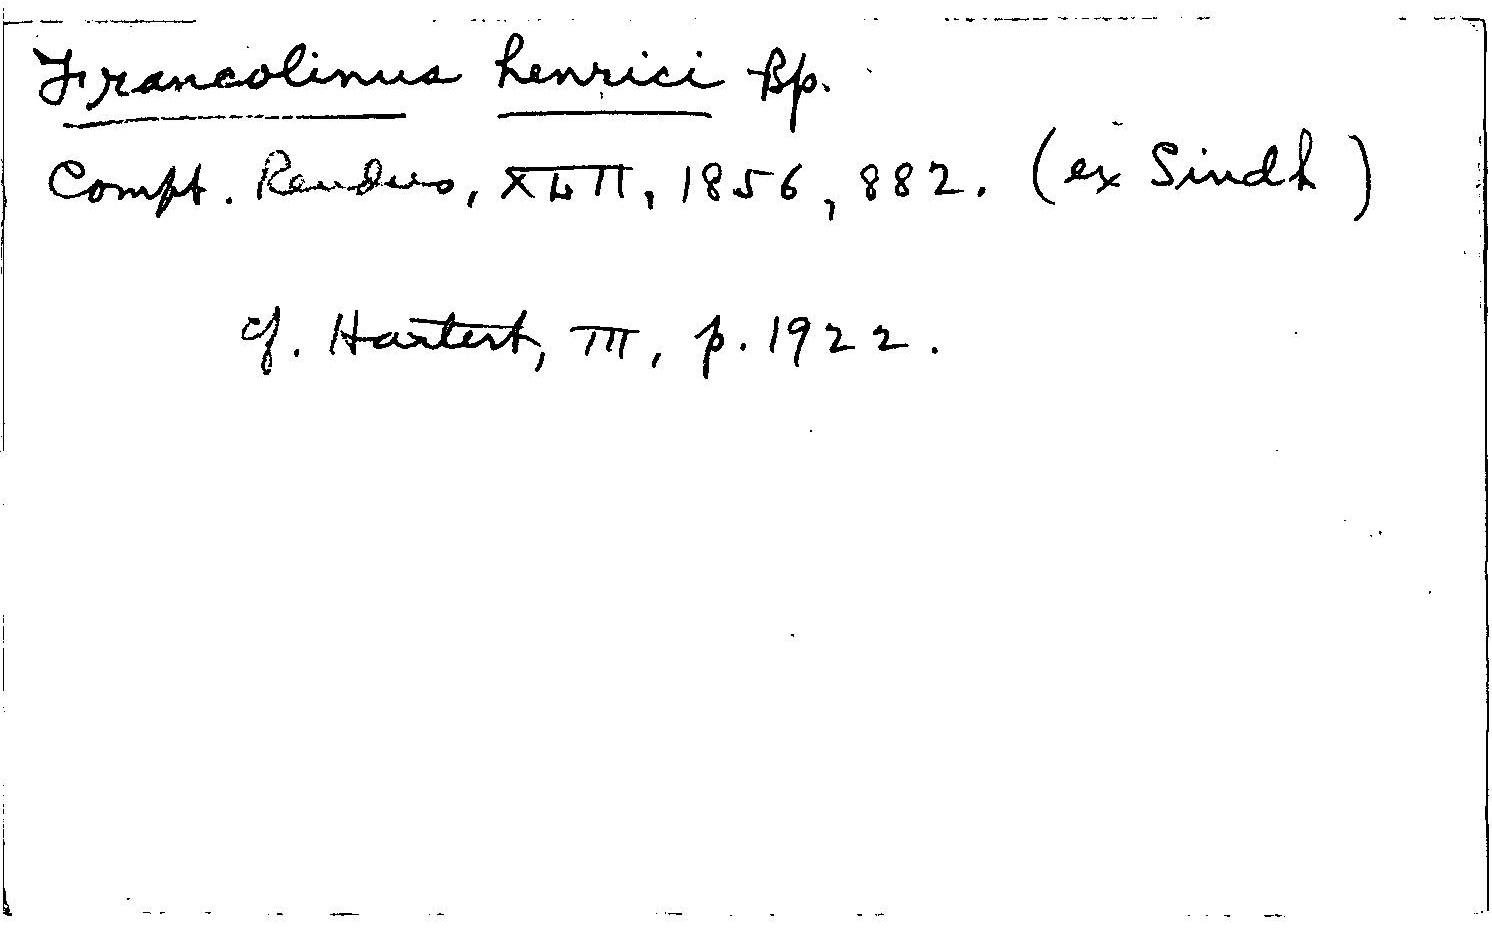 Francolinus henrici Bp.
Compt. Rendus, XLII, 1856, 882. (ex Sindh)
cf. Hartert, III, p. 1922.